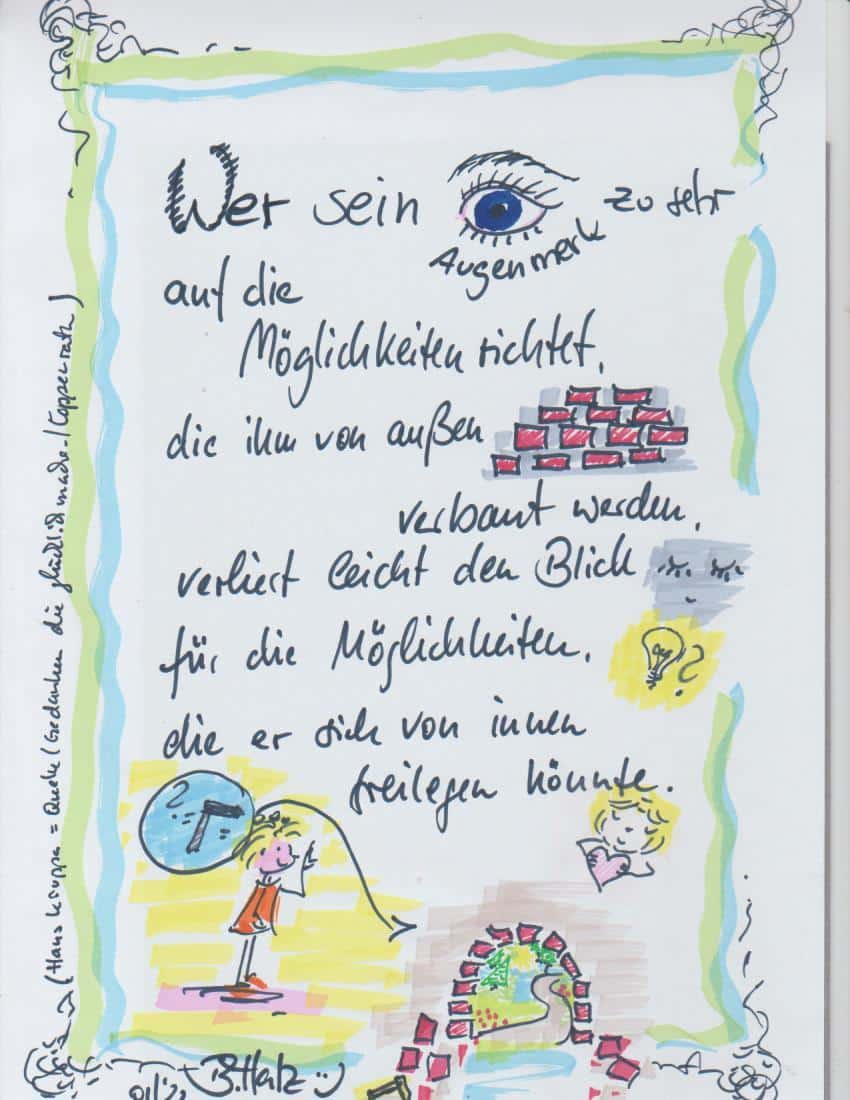 Wer sein Augenmerk zu sehr
auf die
Möglichkeiten richtet,
die ihm von außen
verbaut werden,
verliert leicht den Blick
für die Möglichkeiten,
die er sich von innen
freilegen könnte.
?
?
B. Hertz
(Hans Kruppa = Quelle / Gedanken die glücklich machen / Coppenrath)